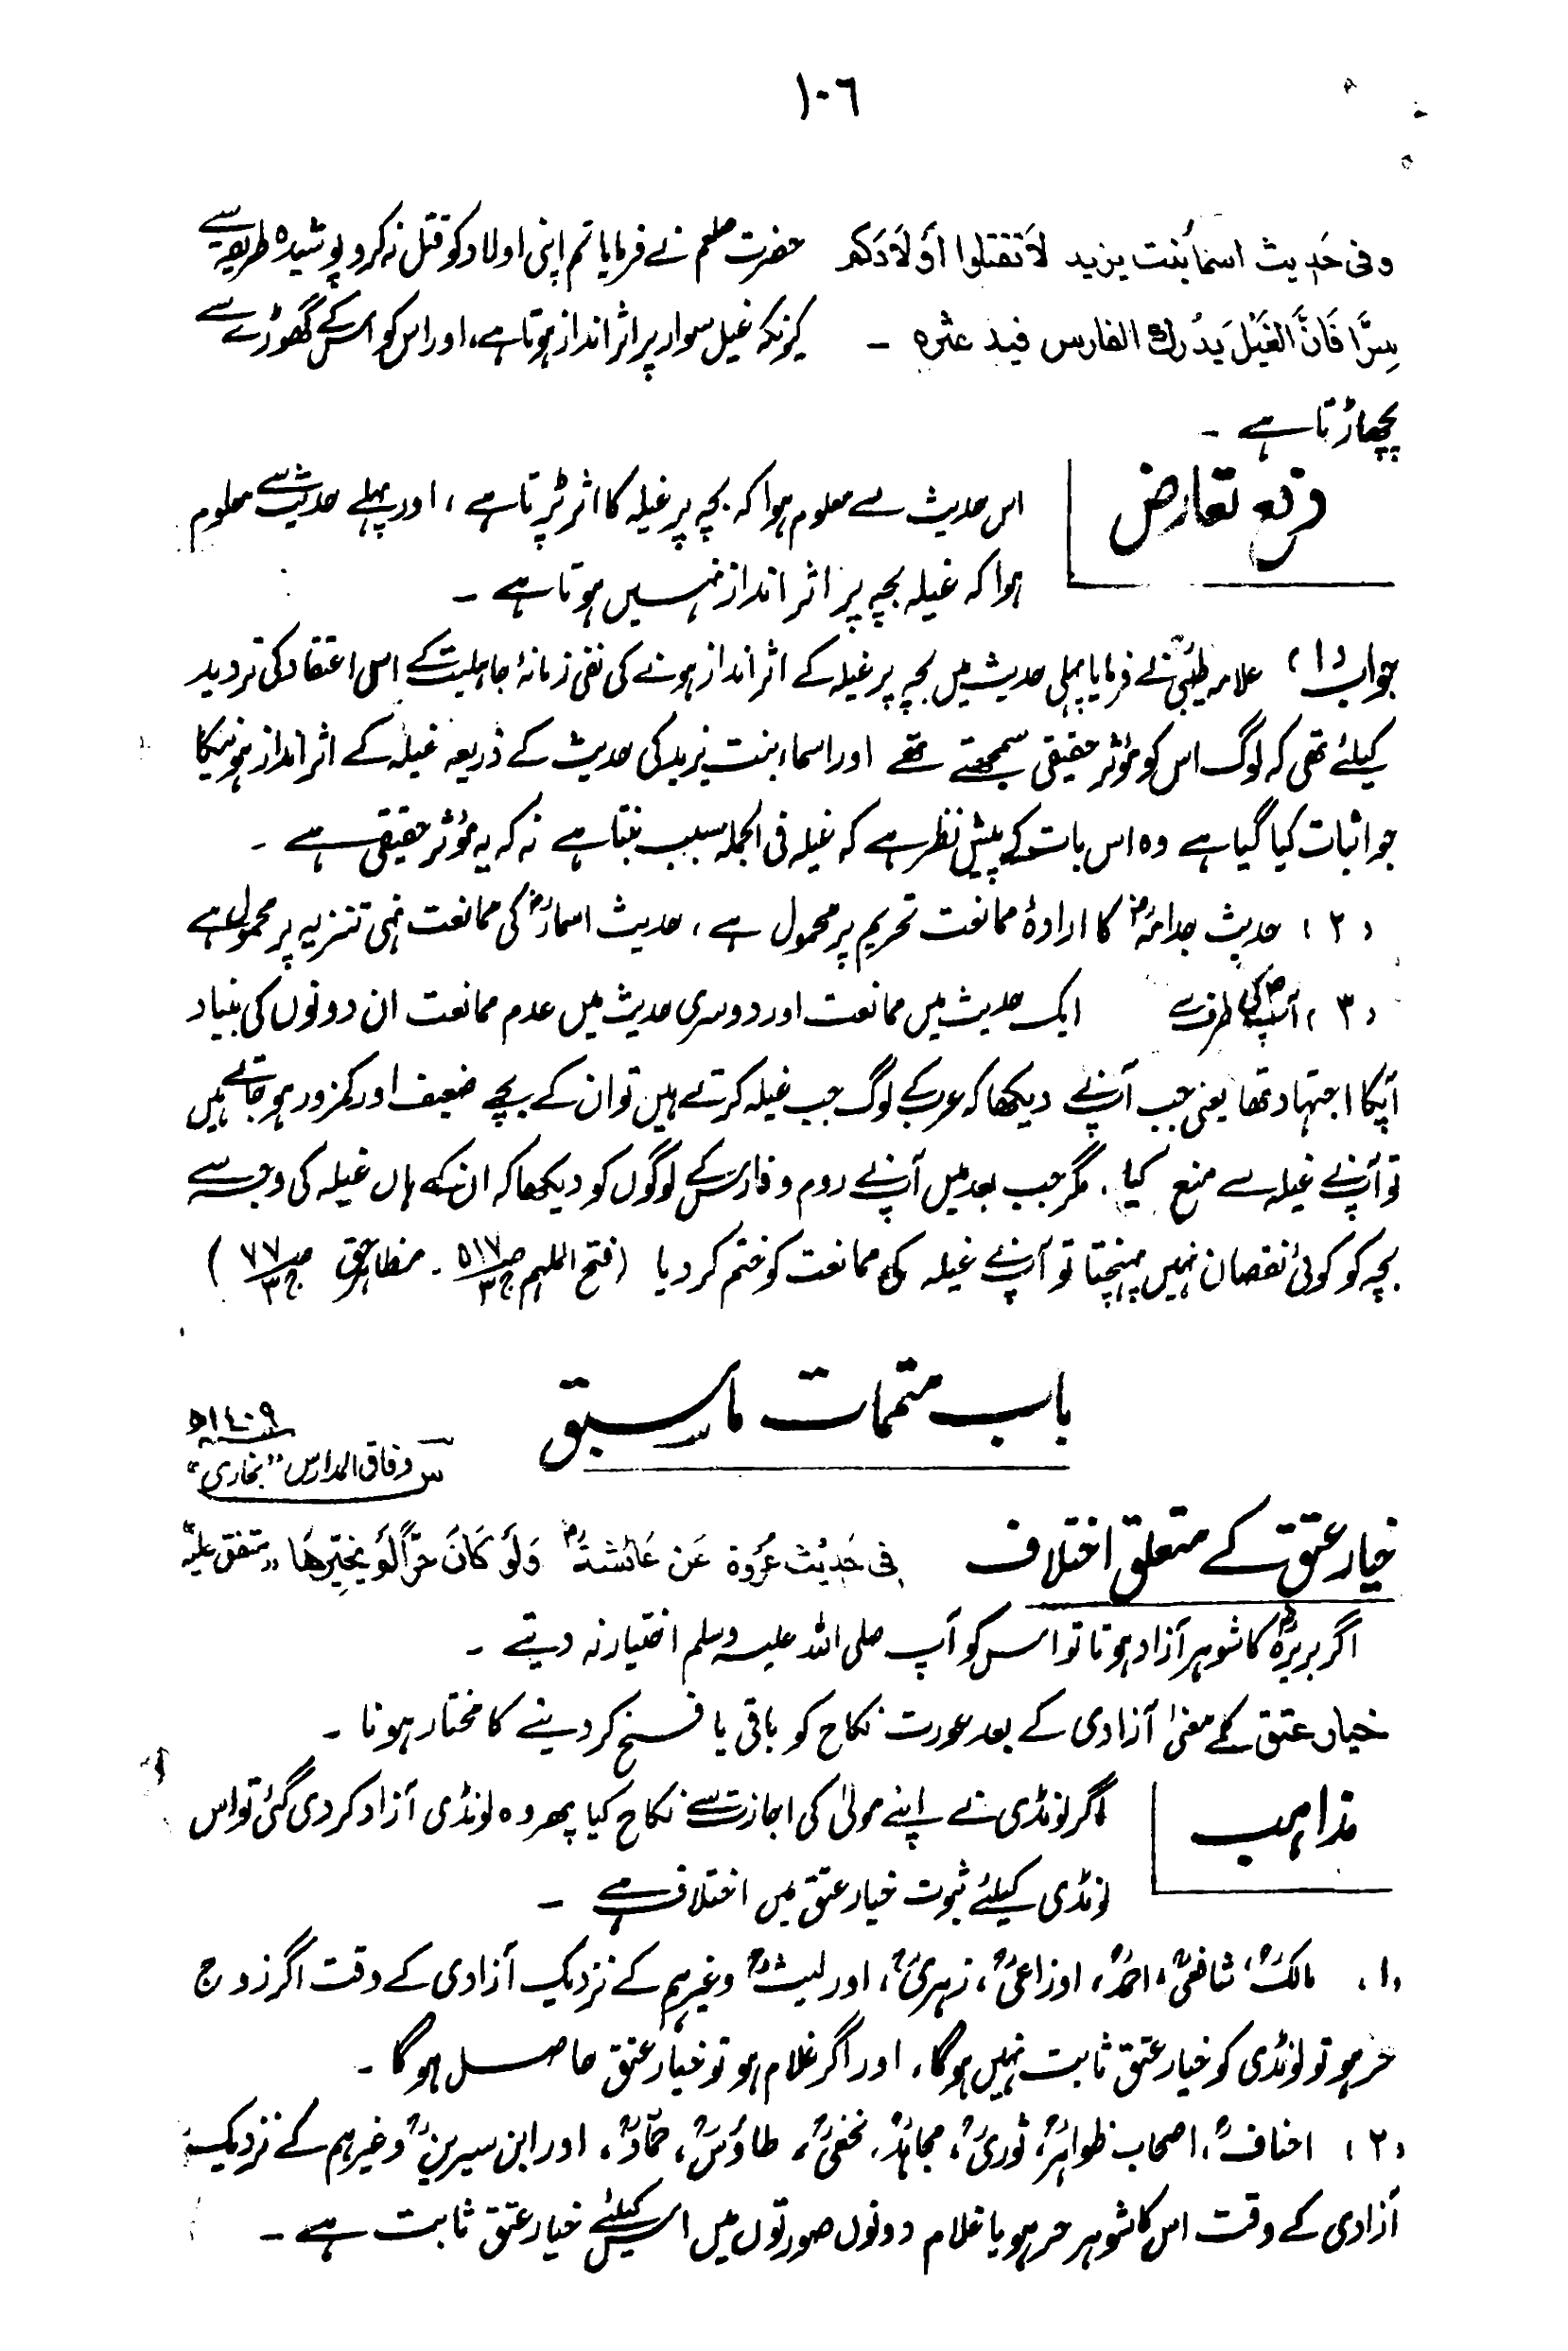 ١٠٦
وفی حَدِیث اسماءُ بنت یزید لاَ تقتلوا أَوْلَادَکم حضرت صلعم نے فرمایا تم اپنی اولاد کو قتل نہ کرو پوشیدہ طریقہ سے
سِرًّا فَاِنَّ الغَیْلَ یَدُرك الفارس فید عثره ۔ کیونکہ غیل سوار پر اثر انداز ہوتا ہے، اور اس کو اس کے گھوڑے سے
پچھاڑتا ہے ۔
رفع تعارض
اس حدیث سے معلوم ہوا کہ بچہ پر غیلہ کا اثر پڑتا ہے، اور پہلے حدیث سے معلوم
ہوا کہ غیلہ بچہ پر اثر انداز نہیں ہوتا ہے ۔
جواب (۱) علامہ طیبیؒ نے فرمایا پہلی حدیث میں بچہ پر غیلہ کے اثر انداز ہونے کی نفی زمانۂ جاہلیت کے اس اعتقاد کی تردید
کیلئے تھی کہ لوگ اس کو مؤثر حقیقی سمجھتے تھے اور اسماء بنت یزید کی حدیث کے ذریعہ غیلہ کے اثر انداز ہونیکا
جو اثبات کیا گیا ہے وہ اس بات کے پیش نظر ہے کہ غیلہ فی الجملہ سبب بنتا ہے نہ کہ یہ مؤثر حقیقی ہے ۔
(۲) حدیث جدامہؓ کا ارادۂ ممانعت تحریم پر محمول ہے، حدیث اسماءؓ کی ممانعت نہی تنزیہ پر محمول ہے
(۳) آپؐ کی طرف سے ایک حدیث میں ممانعت اور دوسری حدیث میں عدم ممانعت ان دونوں کی بنیاد
آپکا اجتہاد تھا یعنی جب آپؐ نے دیکھا کہ عرب کے لوگ جب غیلہ کرتے ہیں تو ان کے بچے ضعیف اور کمزور ہو جاتے ہیں
تو آپؐ نے غیلہ سے منع کیا، مگر جب بعد میں آپؐ نے روم و فارس کے لوگوں کو دیکھا کہ ان کے ہاں غیلہ کی وجہ سے
بچہ کو کوئی نقصان نہیں پہنچتا تو آپؐ نے غیلہ کی ممانعت کو ختم کر دیا (فتح الملہم ص۵۱۷ ج۳ ۔ مظاہر حق ص۷۷ ج۳)
باب متممات ماسبق
۱٤۰۹ھ
س وفاق المدارس "بخاری"
خیار عتق کے متعلق اختلاف فی حَدِیْث عُرْوة عَن عَائشةؓ وَلَوْ کَانَ حُرًّا لَمْ یُخَیِّرْهَا "متفق علیہ"
اگر بریرہؓ کا شوہر آزاد ہوتا تو اس کو آپ صلی اللہ علیہ وسلم اختیار نہ دیتے ۔
خیار عتق کے معنیٰ آزادی کے بعد عورت نکاح کو باقی یا فسخ کر دینے کا مختار ہونا ۔
مذاہب
اگر لونڈی نے اپنے مولیٰ کی اجازت سے نکاح کیا پھر وہ لونڈی آزاد کر دی گئی تو اس
لونڈی کیلئے ثبوت خیار عتق میں اختلاف ہے ۔
(۱) مالکؒ، شافعیؒ، احمدؒ، اوزاعیؒ، زہریؒ، اور لیثؒ وغیرہم کے نزدیک آزادی کے وقت اگر زوج
حر ہو تو لونڈی کو خیار عتق ثابت نہیں ہوگا، اور اگر غلام ہو تو خیار عتق حاصل ہوگا ۔
(۲) احنافؒ، اصحاب ظواہرؒ، ثوریؒ، مجاہدؒ، نخعیؒ، طاؤسؒ، حمّادؒ، اور ابن سیرینؒ وغیرہم کے نزدیک
آزادی کے وقت اس کا شوہر حر ہو یا غلام دونوں صورتوں میں اس کیلئے خیار عتق ثابت ہے ۔